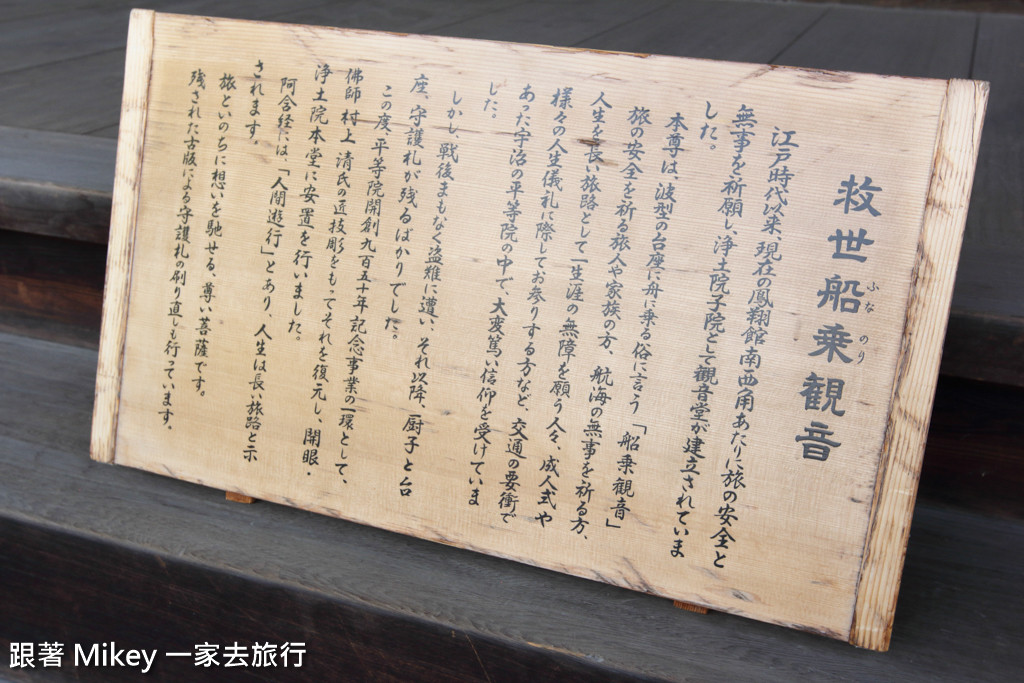 救世船乗観音
ふな のり
江戸時代以来、現在の鳳翔館南西角あたりに旅の安全と
無事を祈願し、浄土院子院として観音堂が建立されていま
した。
本尊は、波型の台座に舟に乗る俗に言う「船乗観音」
旅の安全を祈る旅人や家族の方、航海の無事を祈る方、
人生を長い旅路として一生涯の無障を願う人々、成人式や
様々の人生儀礼に際してお参りする方など、交通の要衝で
あった宇治の平等院の中で、大変篤い信仰を受けていま
した。
しかし、戦後まもなく盗難に遭い、それ以降、厨子と台
座、守護札が残るばかりでした。
この度、平等院開創九百五十年記念事業の一環として、
佛師 村上 清氏の匠技彫をもってそれを復元し、開眼・
浄土院本堂に安置を行いました。
阿含経には、「人間遊行」とあり、人生は長い旅路と示
されます。
旅といのちに想いを馳せる、尊い菩薩です。
残された古版による守護札の刷り直しも行っています。
跟著 Mikey 一家去旅行